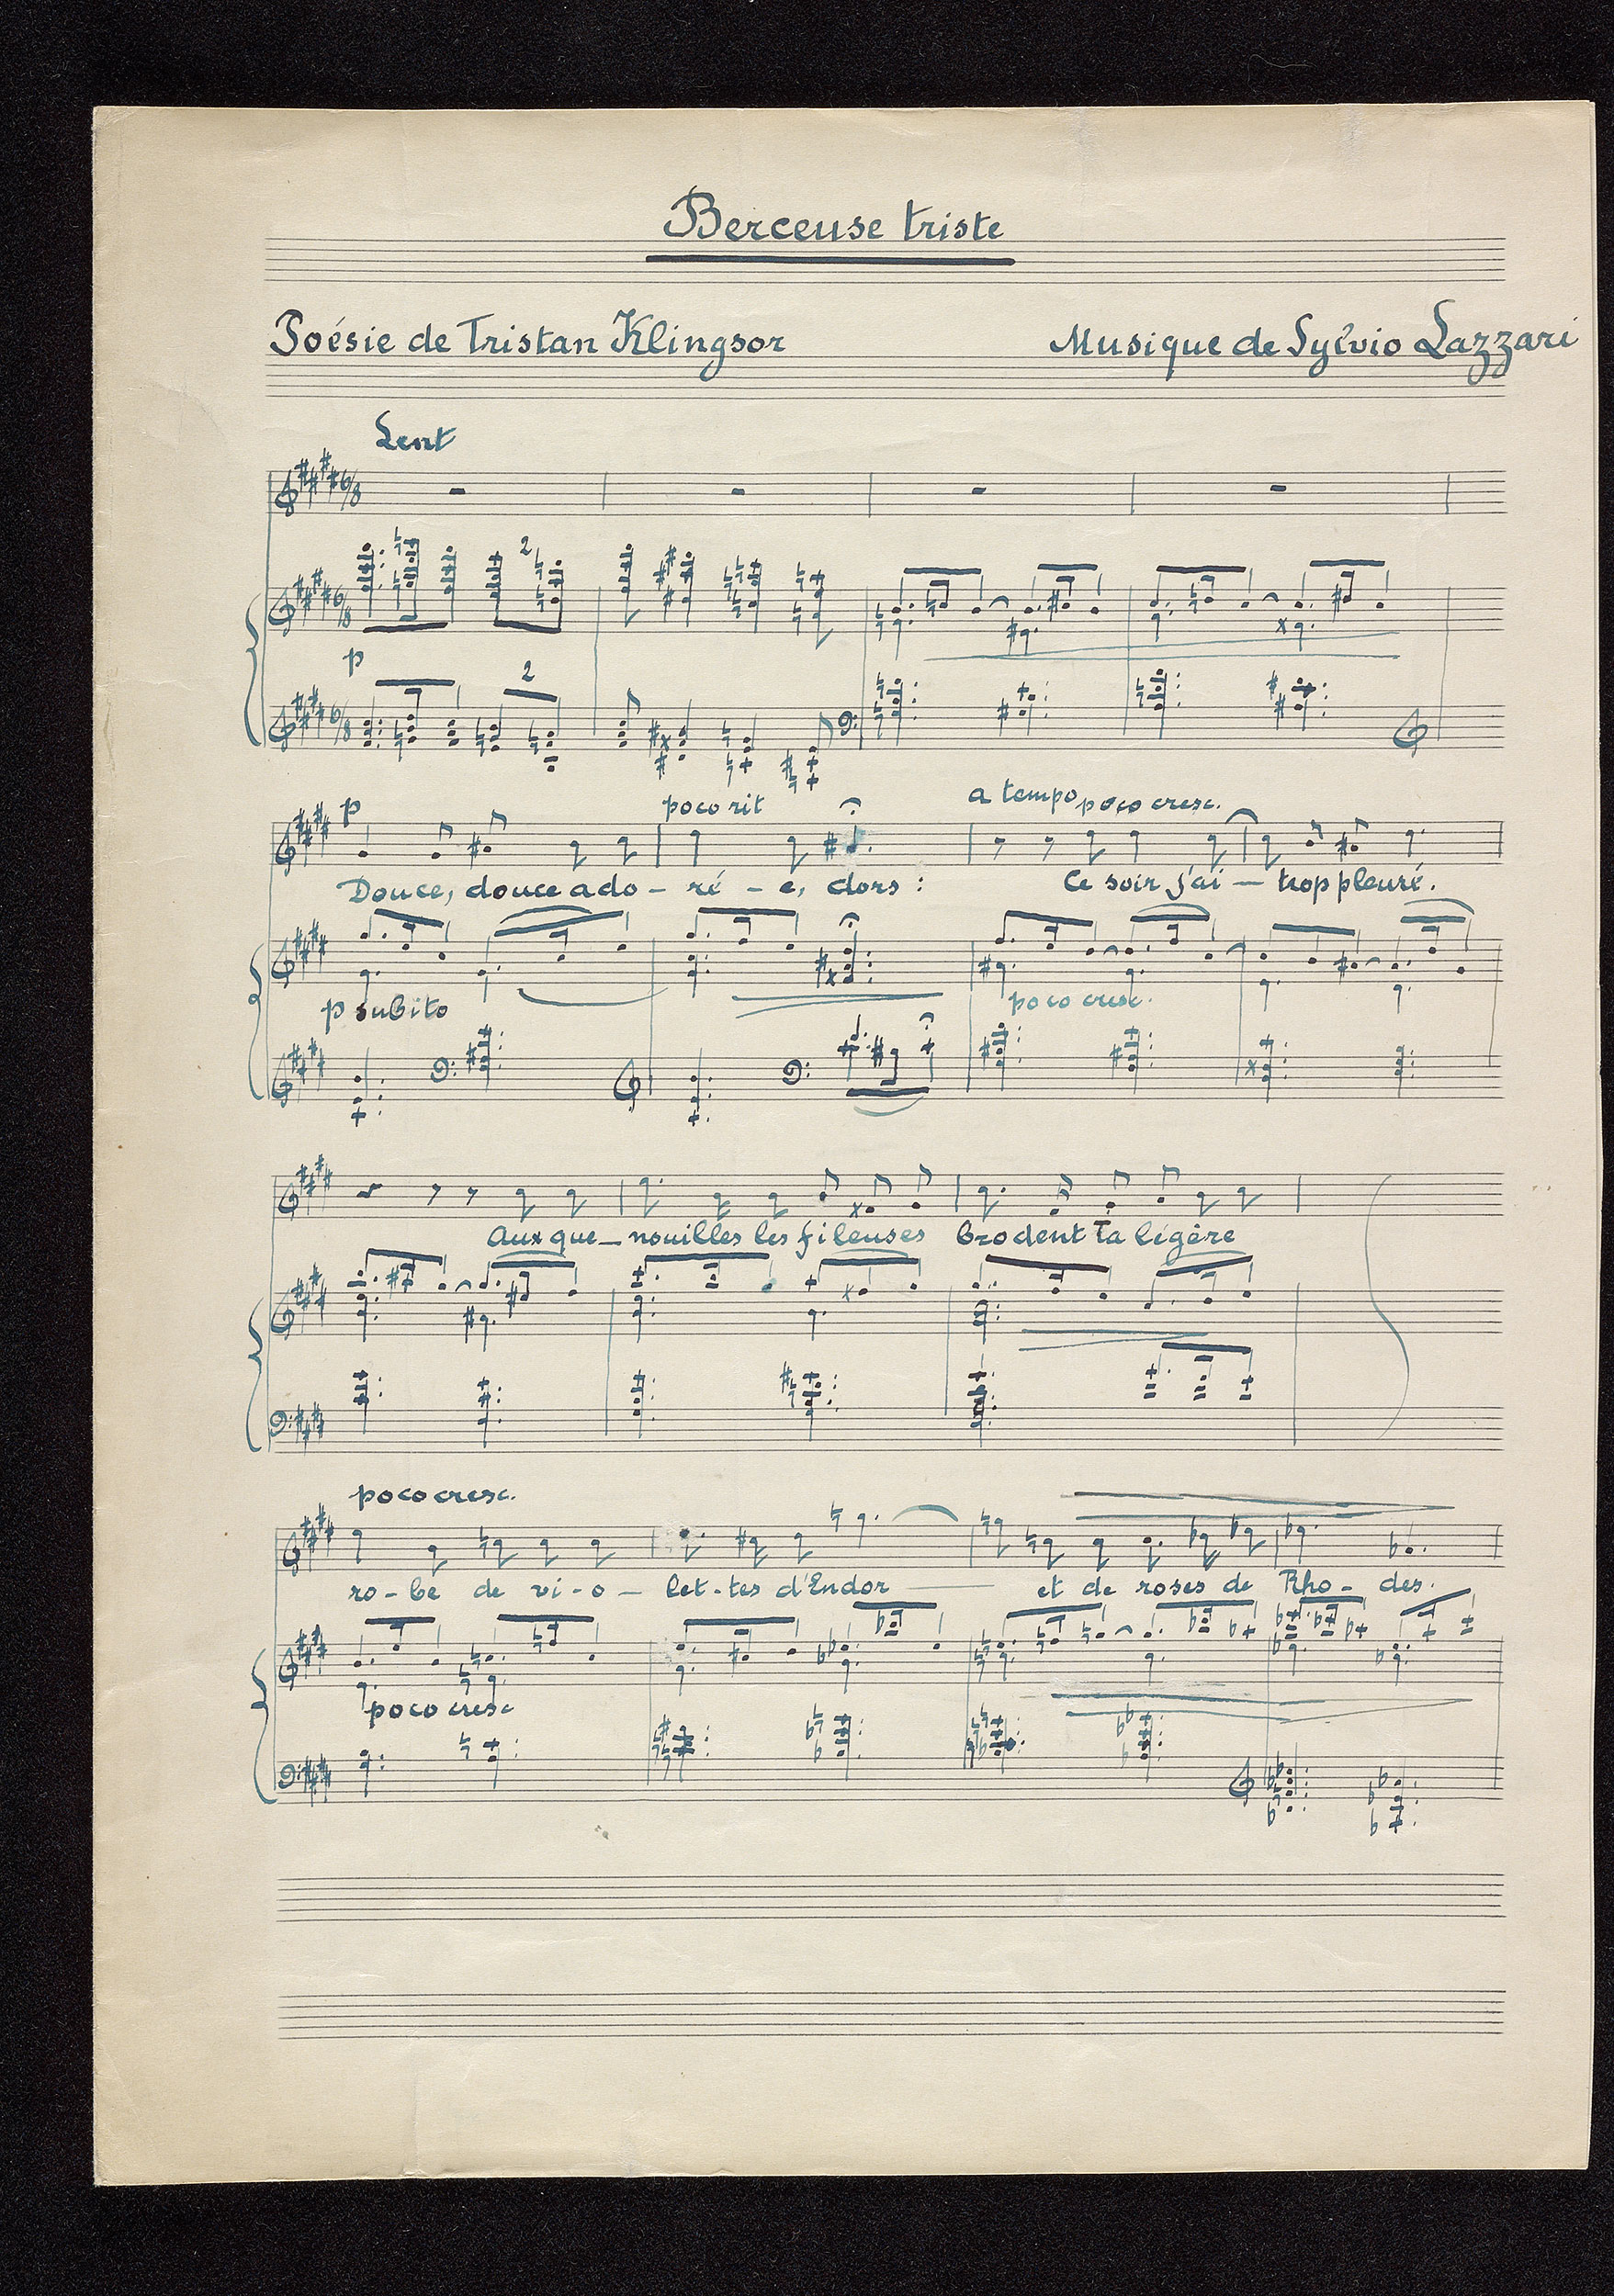 Berceuse triste
Poésie de Tristan Klingsor Musique de Sylvio Lazzari
Lent
6/8
2
6/8
p
2
6/8
p poco rit a tempo poco cresc.
Douce, douce ado - ré - e, dors : Ce soir j'ai - trop pleuré.
p subito poco cresc.
Aux que - nouilles les fileuses brodent ta légère
poco cresc.
ro - be de vi - o - let - tes d'Endor et de roses de Rho - des.
poco cresc